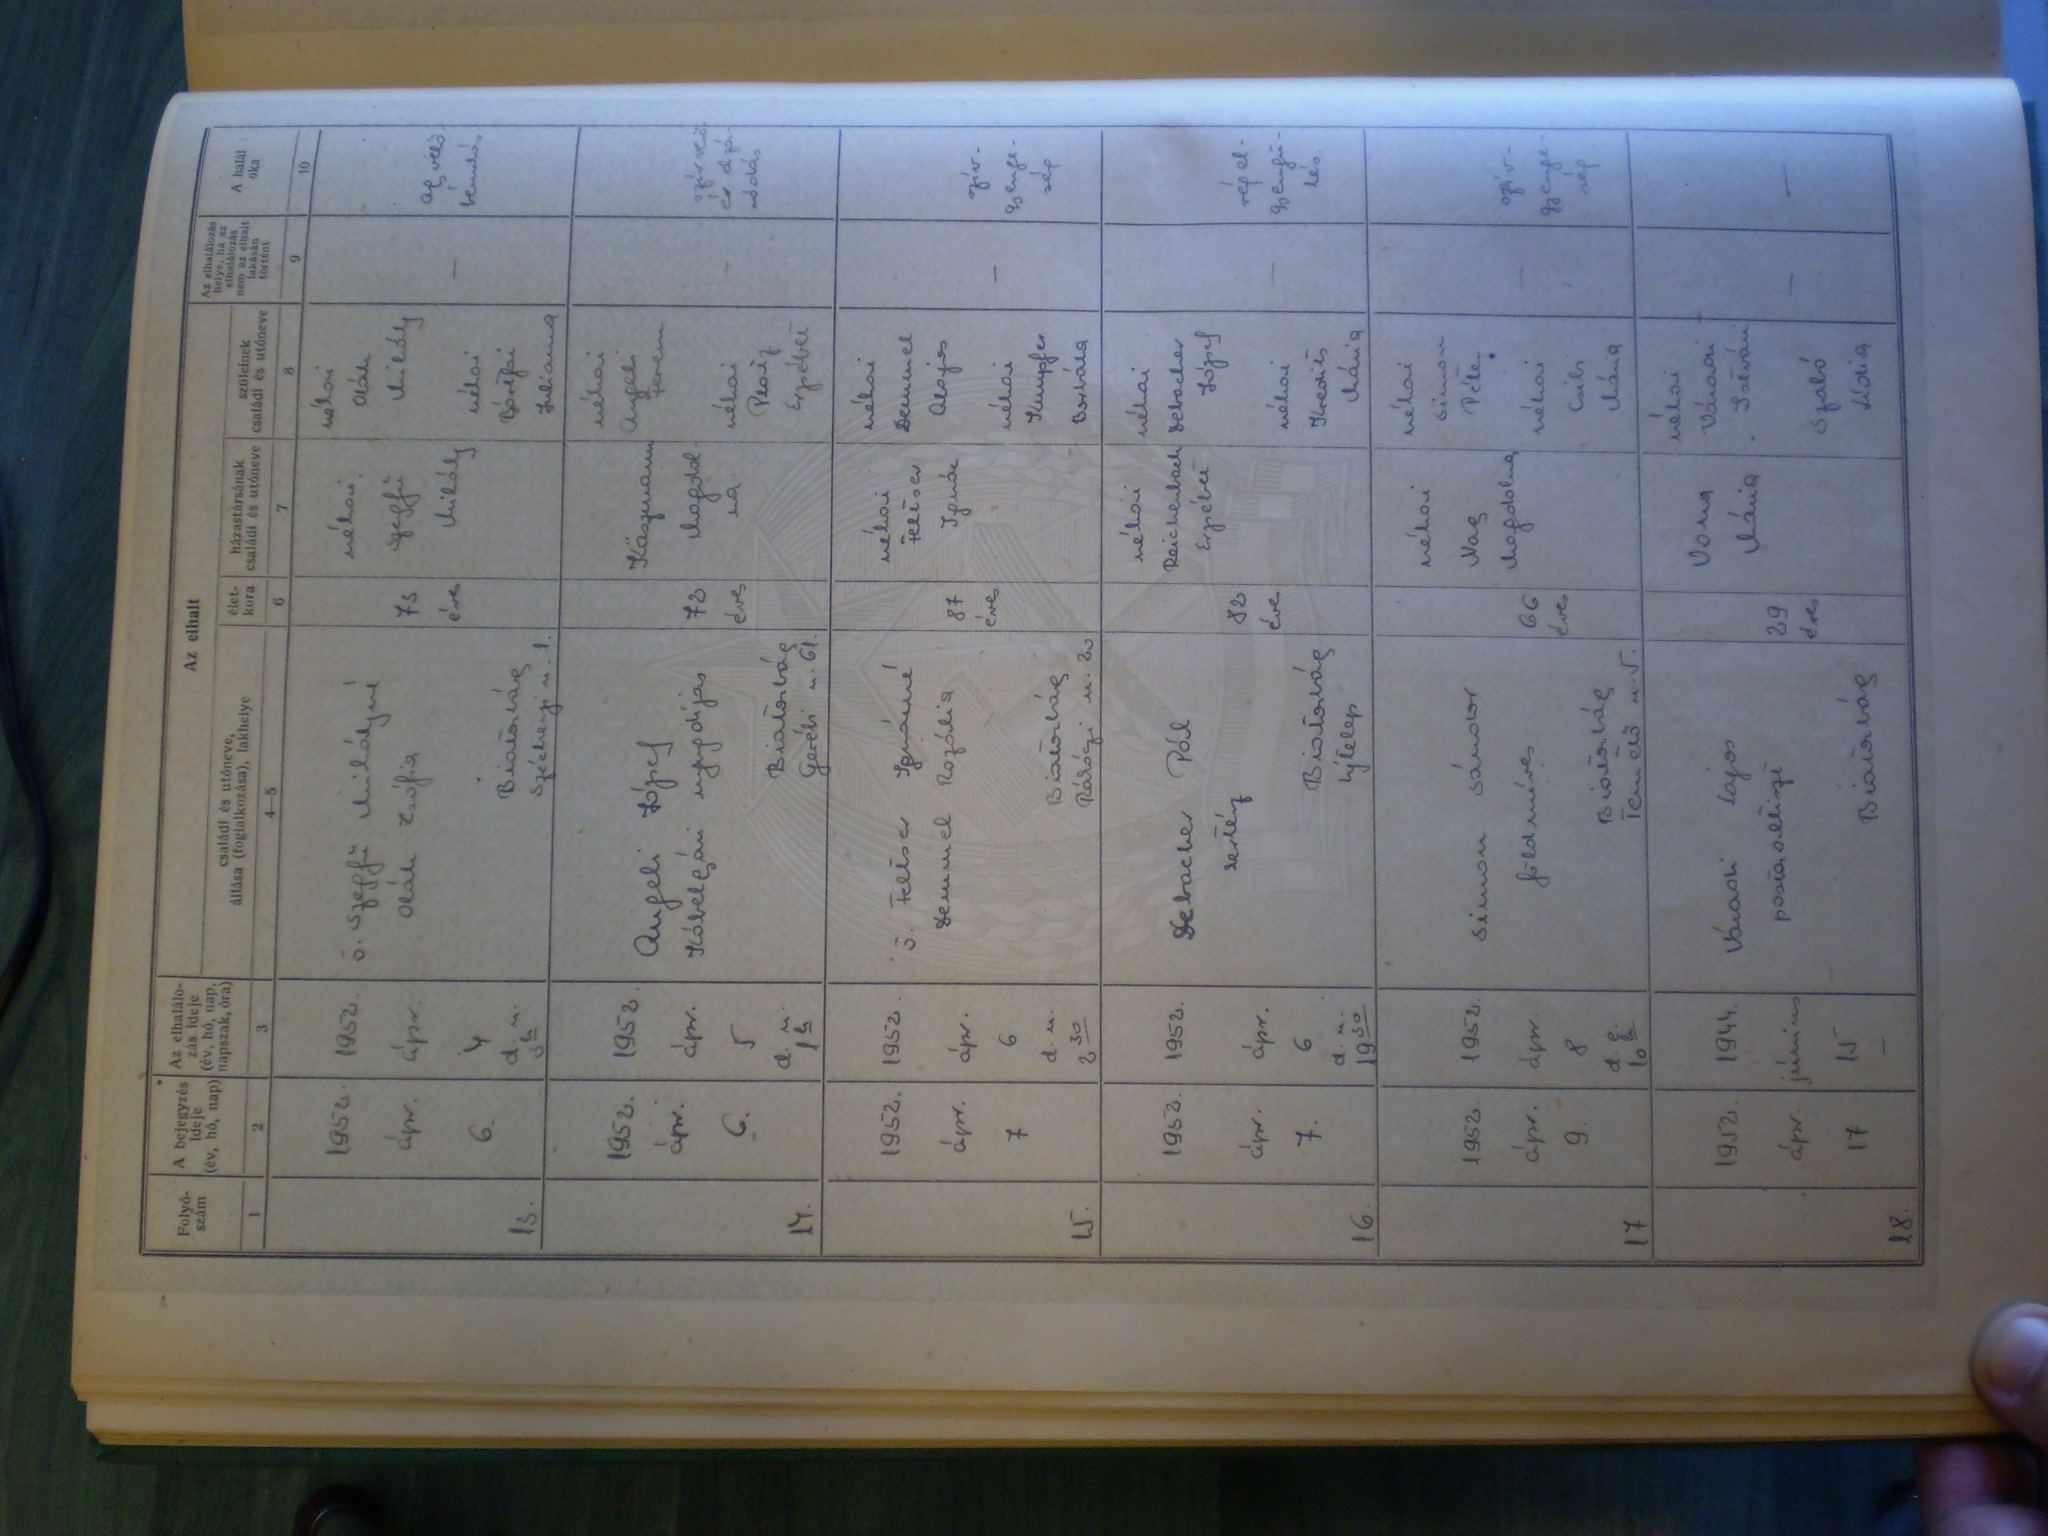 Folyó-
szám
A bejegyzés
ideje
(év, hó, nap)
Az elhalálo-
zás ideje
(év, hó, nap,
napszak, óra)
Az elhalt
családi és utóneve,
állása (foglalkozása), lakhelye
élet-
kora
házastársának
családi és utóneve
szüleinek
családi és utóneve
Az elhalálozás
helye, ha az
elhalálozás
nem az elhalt
lakásán
történt
A halál
oka
1
2
3
4—5
6
7
8
9
10
13.
1952.
ápr.
6.
1952.
ápr.
4
d. u.
3 h
ö. Szegfü Mihályné
Oláh Zsófia
Biatorbág
Széchenyi u. 1.
73
éves
néhai
Szegfü
Mihály
néhai
Oláh
Mihály
néhai
Julianna
—
agyvelő
bénulás
14.
1952.
ápr.
6.
1952.
ápr.
5
d. u.
1 h
Angeli József
nyugdíjas
Biatorbág
u. 61.
72
éves
Magdol-
na
néhai
Angeli
Ferenc
néhai
Erzsébet
—
15.
1952.
ápr.
7
1952.
ápr.
6
d. u.
2 30
ö. Feltser Ignácné
Demmel Rozália
Biatorbág
Rákóczi u. 20
87
éves
néhai
Feltser
Ignác
néhai
Demmel
Alajos
néhai
Kumpfer
Borbála
—
szív-
gyenge-
ség
16.
1952.
ápr.
7.
1952.
ápr.
6
d. u.
19 30
Delbacher Pál
Biatorbág
Ujtelep
82
éves
néhai
Reichenbach
Erzsébet
néhai
József
néhai
Mária
—
vég el-
gyengü-
lés
17
1952.
ápr.
9.
1952.
ápr.
8
d. e.
10 h
Simon Sándor
földmíves
Biatorbág
Temető u. 5.
66
éves
néhai
Nag
Magdolna
néhai
Simon
Péter
néhai
Csibi
Mária
—
szív-
gyenge-
ség
18.
1952.
ápr.
17
1944.
június
15
—
Váradi Lajos
postaaltiszt
Biatorbág
29
éves
Vona
Mária
néhai
Váradi
István
Szabó
Lidia
—
—